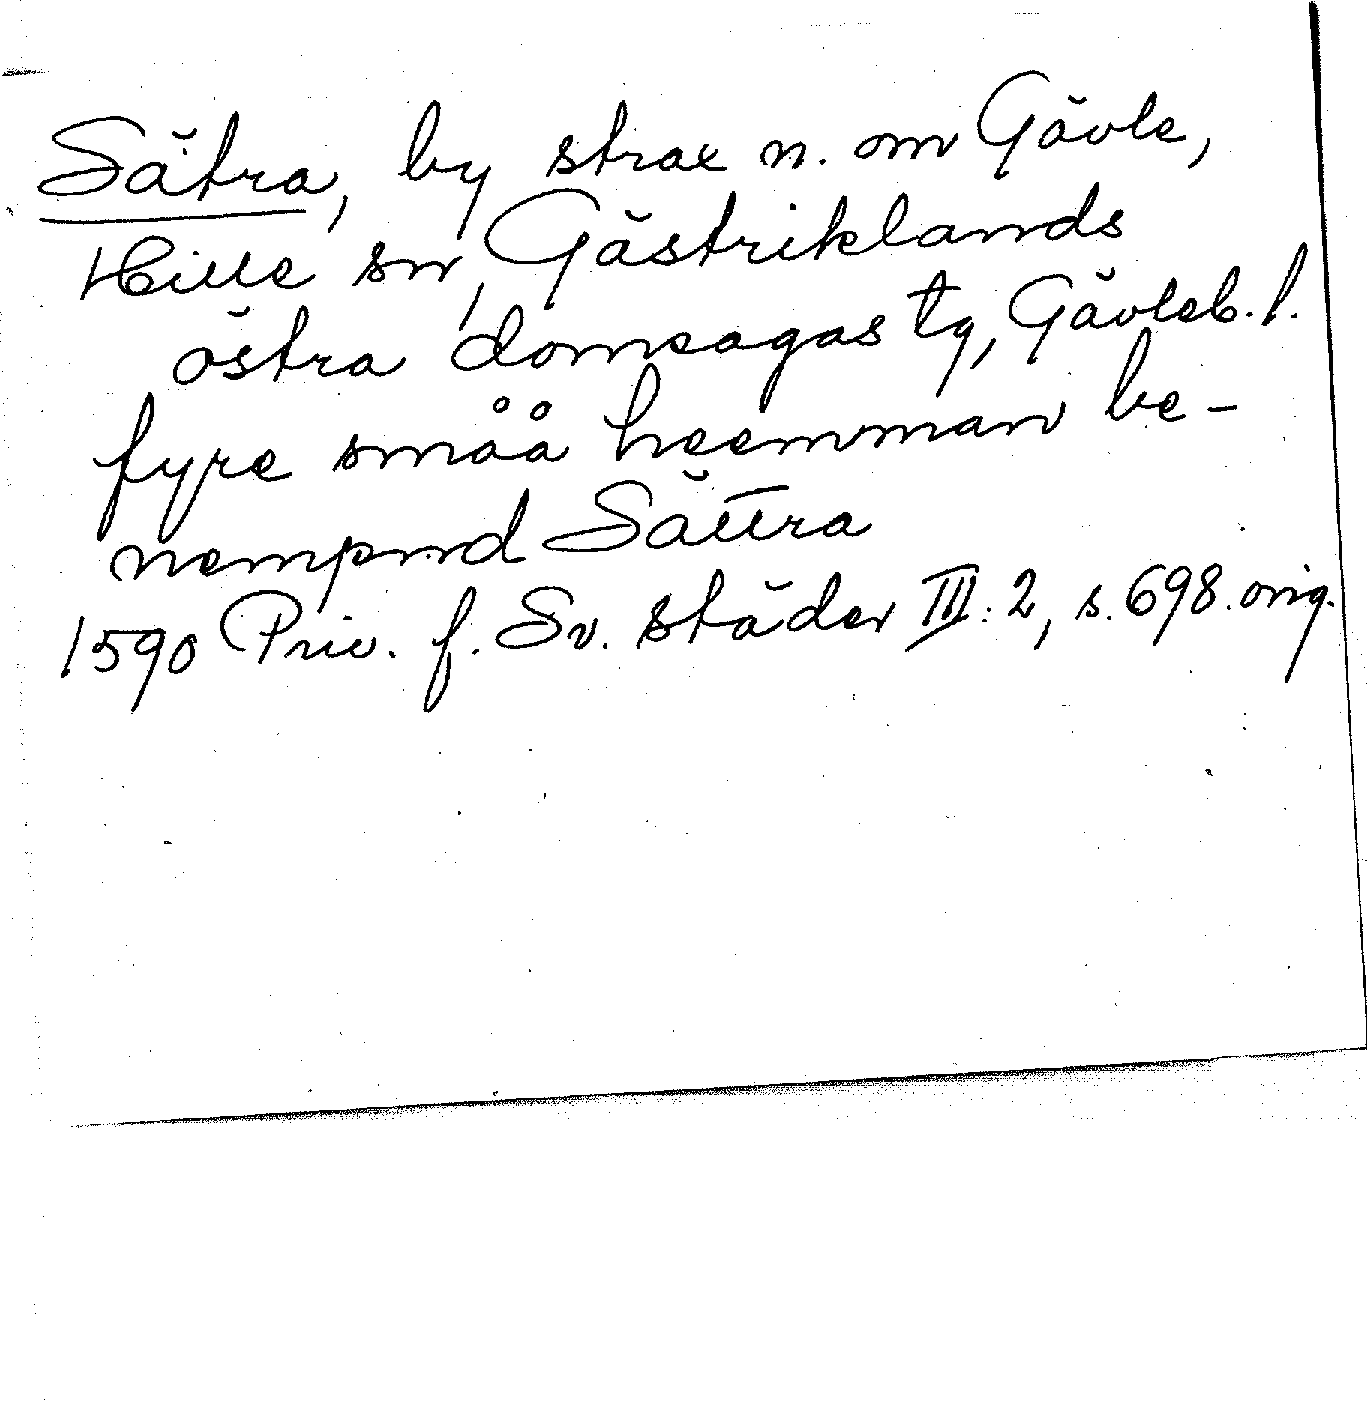 Sätra, by strax n. om Gävle,
Hille sn, Gästriklands
östra domsagas tg, Gävleb. l.
fyre småå heemman be-
nempnd Sättra
1590 Priv. f. Sv. städer III: 2, s. 698. orig.